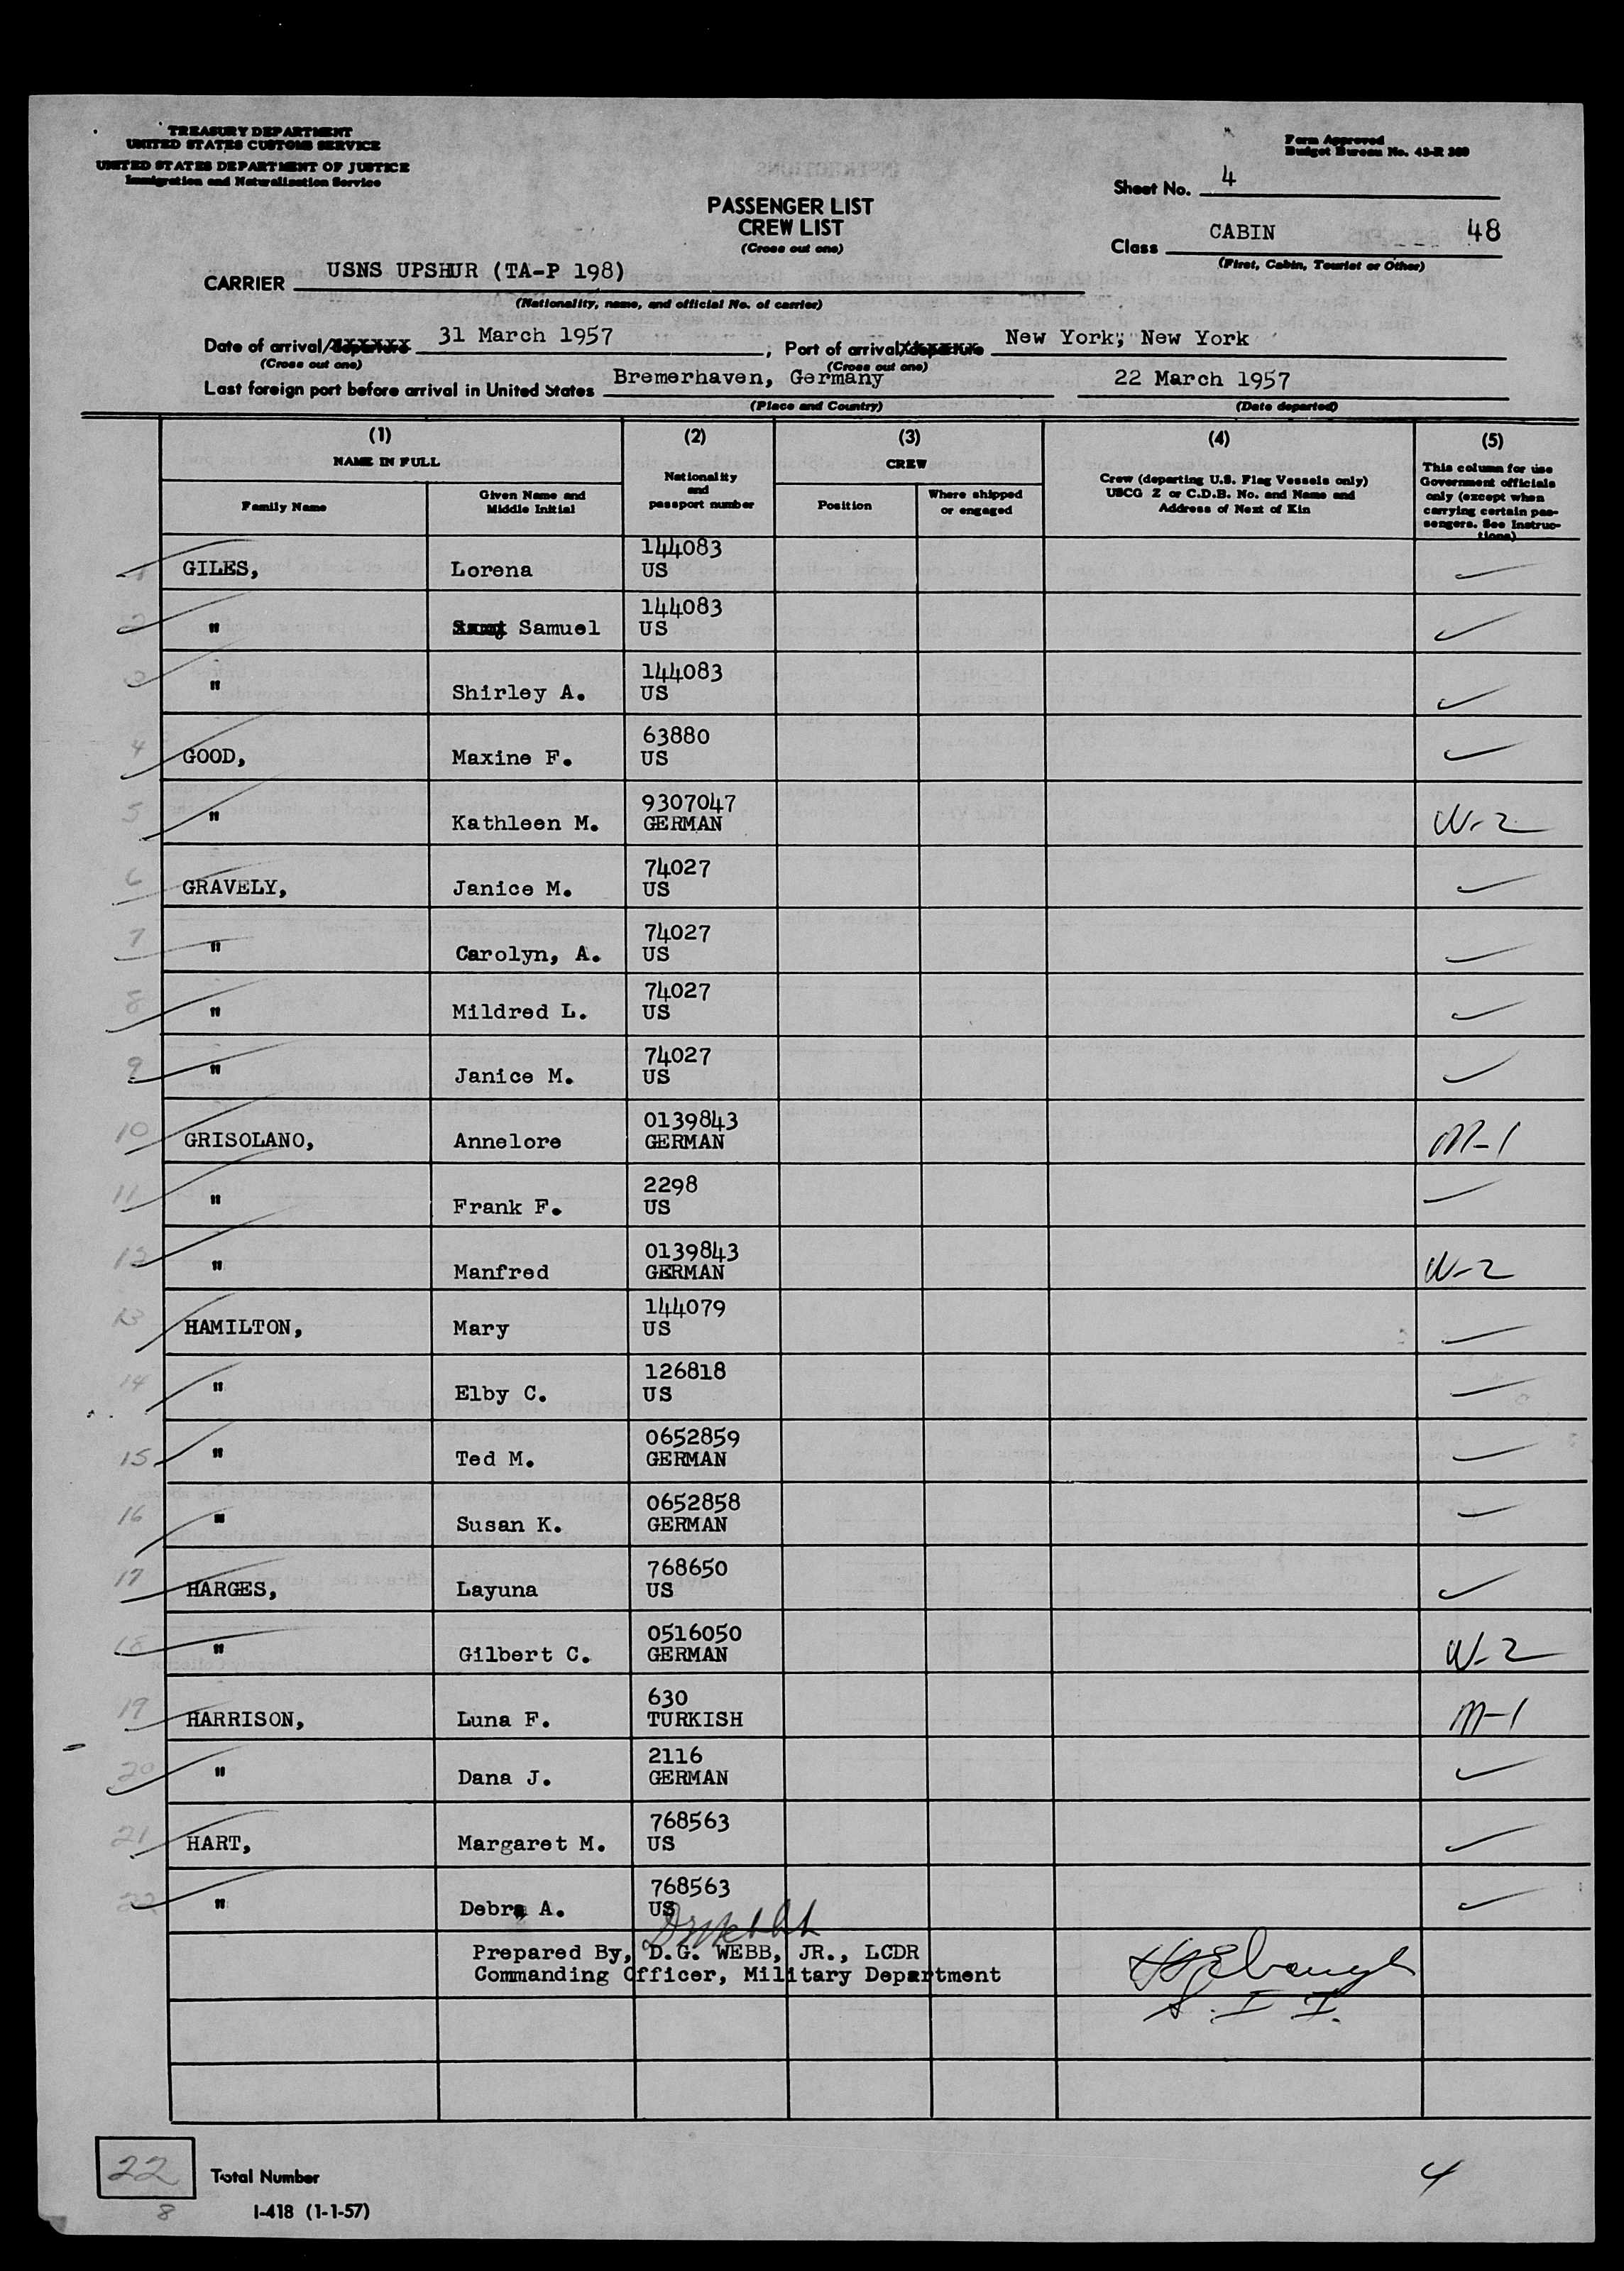 TREASURY DEPARTMENT
UNITED STATES CUSTOMS SERVICE
UNITED STATES DEPARTMENT OF JUSTICE
Immigration and Naturalization Service
Form Approved
Budget Bureau No. 43-R 369
Sheet No. 4
PASSENGER LIST
CREW LIST
(Cross out one)
Class CABIN 48
(First, Cabin, Tourist or Other)
CARRIER USNS UPSHUR (TA-P 198)
(Nationality, name, and official No. of carrier)
Date of arrival/departure 31 March 1957; Port of arrival/departure New York, New York
(Cross out one) (Cross out one)
Last foreign port before arrival in United States Bremerhaven, Germany 22 March 1957
(Place and Country) (Date departed)
(1) (2) (3) (4) (5)
NAME IN FULL Nationality and passport number CREW Crew (departing U.S. Flag Vessels only) USCG Z or C.D.B. No. and Name and Address of Next of Kin This column for use Government officials only (except when carrying certain passengers. See Instructions)
Family Name Given Name and Middle Initial Position Where shipped or engaged
144083
1 GILES, Lorena US
144083
2 " Samuel US
144083
3 " Shirley A. US
63880
4 GOOD, Maxine F. US
9307047
5 " Kathleen M. GERMAN W-2
74027
6 GRAVELY, Janice M. US
74027
7 " Carolyn, A. US
74027
8 " Mildred L. US
74027
9 " Janice M. US
0139843
10 GRISOLANO, Annelore GERMAN M-1
2298
11 " Frank F. US
0139843
12 " Manfred GERMAN W-2
144079
13 HAMILTON, Mary US
126818
14 " Elby C. US
0652859
15 " Ted M. GERMAN
0652858
16 " Susan K. GERMAN
768650
17 HARGES, Layuna US
0516050
18 " Gilbert C. GERMAN W-2
630
19 HARRISON, Luna F. TURKISH M-1
2116
20 " Dana J. GERMAN
768563
21 HART, Margaret M. US
768563
22 " Debra A. US
Prepared By, D.G. WEBB, JR., LCDR
Commanding Officer, Military Department
S. I. I.
22 Total Number 4
8
I-418 (1-1-57)